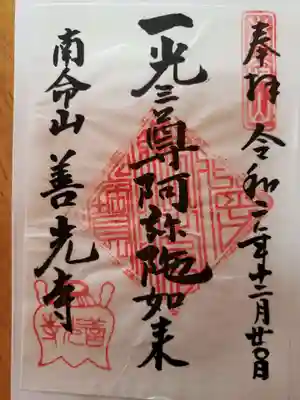 奉拝 令和二年十二月廿〇日
一光三尊阿弥陀如来
南命山 善光寺